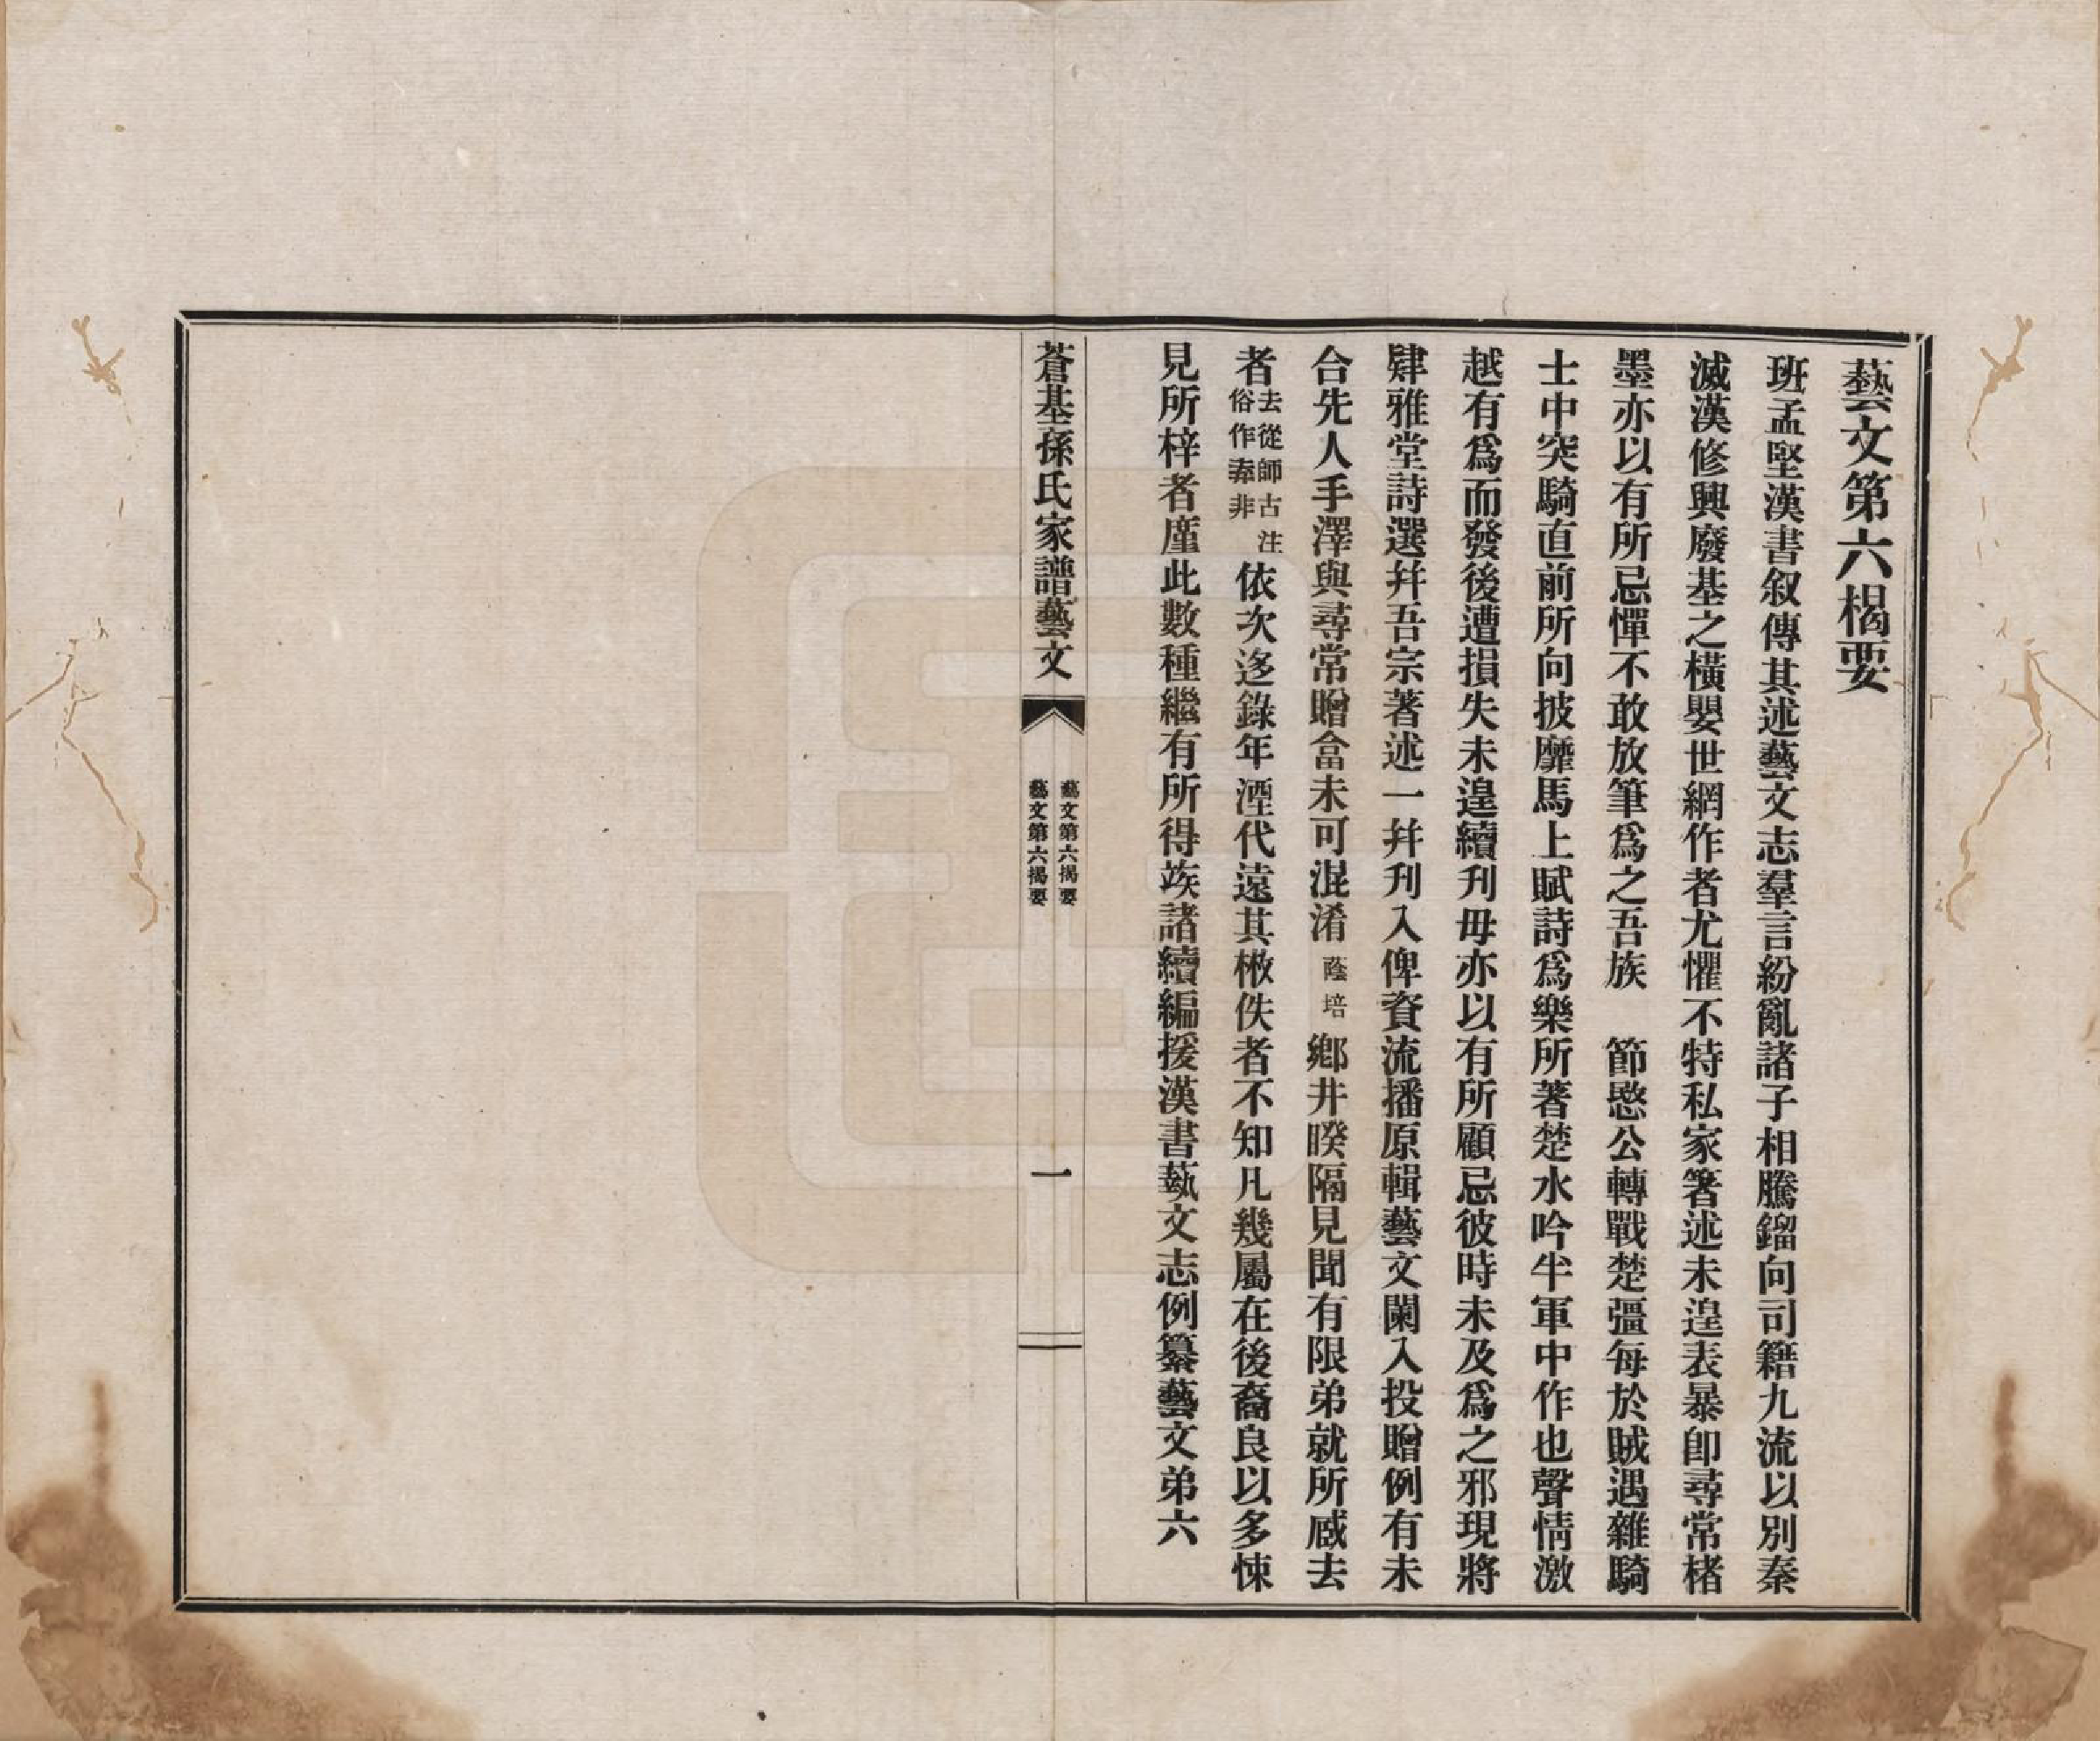 藝文第六楬要
班孟堅漢書叙傳其述藝文志羣言紛亂諸子相騰鎦向司籍九流以別秦
滅漢修興廢基之橫嬰世網作者尤懼不特私家箸述未遑表暴卽尋常楮
墨亦以有所忌憚不敢放筆爲之吾族　節愍公轉戰楚彊每於賊遇雜騎
士中突騎直前所向披靡馬上賦詩爲樂所著楚水吟半軍中作也聲情激
越有爲而發後遭損失未遑續刋毋亦以有所顧忌彼時未及爲之邪現將
肄雅堂詩選幷吾宗著述一幷刋入俾資流播原輯藝文闌入投贈例有未
合先人手澤與尋常贈畣未可混淆蔭培鄉井暌隔見聞有限弟就所感去
者去從師古注俗作弆非依次迻錄年湮代遠其㪚佚者不知凡幾屬在後裔良以多悚
見所梓者廑此數種繼有所得竢諸續編援漢書蓺文志例纂藝文弟六
蒼基孫氏家譜藝文
藝文第六揭要
藝文第六揭要
一